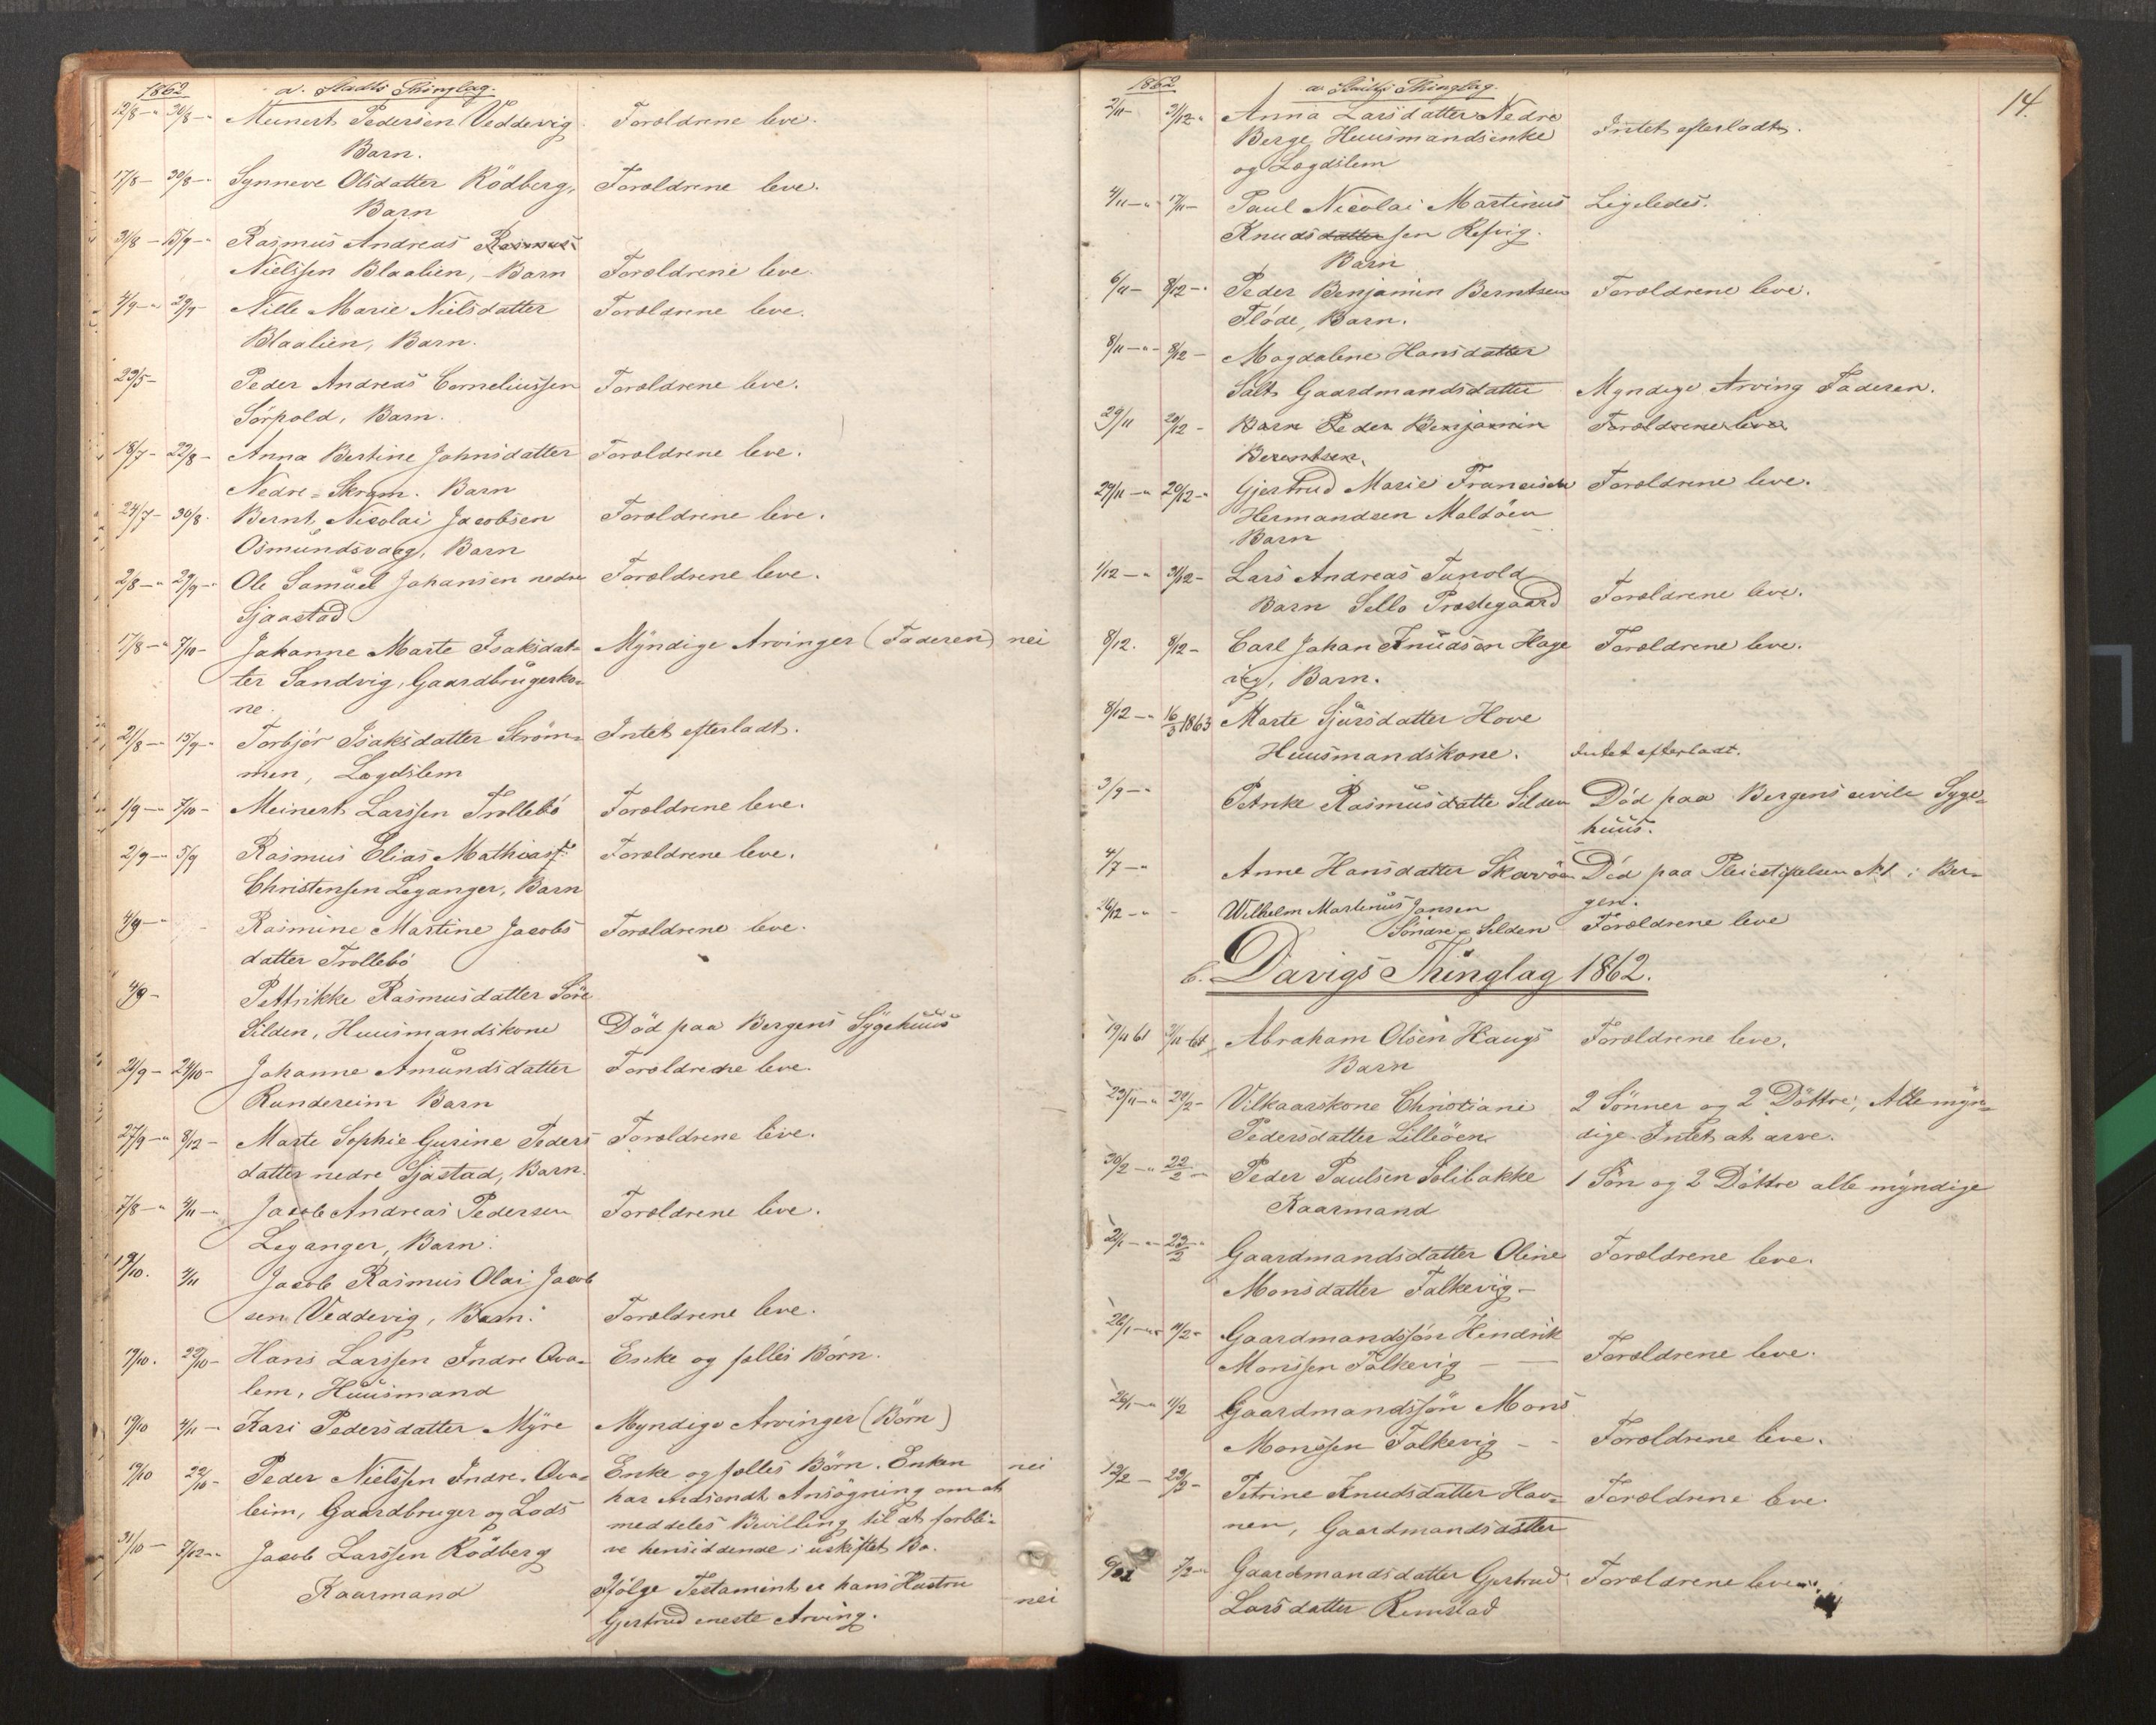 1862 a. Stadts Thinglag.
12/8 — " 30/8 — " Meinert Pedersen Veddevig Forældrene leve.
Barn.
17/8 — 30/8 — " Synneve Olsdatter Rödberg, Forældrene leve.
Barn
31/8 — 15/9 — " Rasmus Andreas Rasmus-
Nielssen Blaalien, - Barn Forældrene leve.
4/9 — " 29/9 — Nille Marie Nielsdatter Forældrene leve.
Blaalien, Barn.
23/5 — Peder Andreas Corneliussen Forældrene leve.
Sörpold, Barn.
18/7 — 22/8 — Anna Bertine Johnsdatter Forældrene leve.
Nedre = Skram. Barn
24/7 — 30/8. Bernt Nicolai Jacobsen Forældrene leve.
Osmundsvaag, Barn
2/8 — " 29/9 — " Ole Samuel Johansen nedre Forældrene leve.
Gjaastad
17/8 — " 7/10 — Johanne Marte Isaksdat- Myndige Arvinger (Faderen) nei
ter Sandvig, Gaardbrugerko-
ne.
21/8 — " 15/9 — " Torbjör Isaksdatter Ström- Intet efterladt.
men, Lægdslem
1/9 — " 7/10 — Meinert Larssen Trollebö Forældrene leve.
2/9 — " 5/9 Rasmus Elias Mathias Forældrene leve.
Christensen Leganger, Barn
4/9 — " Rasmine Martine Jacobs Forældrene leve.
datter Trollebö
4/9 — Pettrikke Rasmusdatter Söre
Silden, Huusmandskone Död paa Bergens Sygehuus
21/9 — 24/10 — Johanne Amundsdatter Forældrene leve.
Rundereim Barn
27/9 — " 8/12 — Marte Sophie Gurine Peders Forældrene leve.
datter nedre Gjastad, Barn.
7/8 — " 4/11 — " Jacob Andreas Pedersen Forældrene leve.
Leganger, Barn.
19/10. 4/11 Jacob Rasmus Olai Jacob
sen Veddevig, Barn. Forældrene leve.
19/10. 22/10 — Hans Larssen Indre Qva- Enke og fælles Börn.
lem, Huusmand
19/10 4/11 — Kari Pedersdatter Myre Myndige Arvinger (Börn)
19/10 22/10 — Peder Nielssen Indre Qva- Enke og fælles Börn. Enken nei
leim, Gaardbruger og Lods har indsendt Ansögning om at
meddeles Bevilling til at forbli-
31/10 — 7/12 — " Jacob Larssen Rödberg ve hensiddende i uskiftet Bo.
Kaarmand Ifölge Testament er hans Hustru nei
Gjertrud eneste Arving.
14.
1862 a. Stadts Thinglag.
2/11 — 31/12 — " Anna Larsdatter Nedre
Berge, Huusmandsenke Intet efterladt.
og Lægdslem
4/11 — " 17/11 — Paul Nicolai Martinus Ligeledes.
Knudsdatter sen Refvig.
Barn
6/11 — 8/12 — " Peder Benjamin Berntsen Forældrene leve.
Flöde, Barn.
8/11 — " 8/12 — Magdalene Hansdatter
Salt Gaardmandsdatter Myndige Arving Faderen.
29/11 20/12 — Barn Peder Benjamin Forældrene leve
Berentsen.
29/11 — " 20/12 — " Gjertrud Marie Francisca Forældrene leve.
Hermandsen Moldöen
Barn
1/12 — " 31/12 — Lars Andreas Tunold
Barn Sello Præstegaard Forældrene leve.
8/12. 9/12 — Carl Johan Knudsen Hage Forældrene leve.
vig, Barn.
8/12 — " 16/3 1863 Marte Sjursdatter Hove
Huusmandskone. Intet efterladt.
3/9 — " Petrike Rasmusdatte Silden Död paa Bergens civile Syge-
huus.
4/7 — " Anne Hansdatter Skavöen Död paa Pleiestiftelsen No 1 i Ber-
gen.
26/12 — " - Wilhelm Martinus Jansen
Söndre Silden Forældrene leve
b. Davigs Thinglag 1862.
19/11 61 21/11 - 61 Abraham Olsen Haugs Forældrene leve.
Barn
23/11 — " 22/2 — Vilkaarskone Christiane 2 Sönner og 2 Döttre, Alle myn-
Pedersdatter Lilleöen dige. Intet at arve.
30/2 — " 22/2 — Peder Paulsen Solibakke 1 Sön og 2 Döttre alle myndige
Kaarmand
2/1 — " 23/2 Gaardmandsdatter Oline Forældrene leve.
Monsdatter Falkevig —
26/1 — " 11/2 — Gaardmandssön Hendrik
Monssen Falkevig — — Forældrene leve.
26/1 — " 11/2 Gaardmandssön Mons
Monssen Falkevig — - Forældrene leve.
12/2 — 23/3 — Petrine Knudsdatter Hav- Forældrene leve.
nen, Gaardmandsdatter
7/2 — " Gaardmandsdatter Gjertrud Forældrene leve.
Larsdatter Rimstad